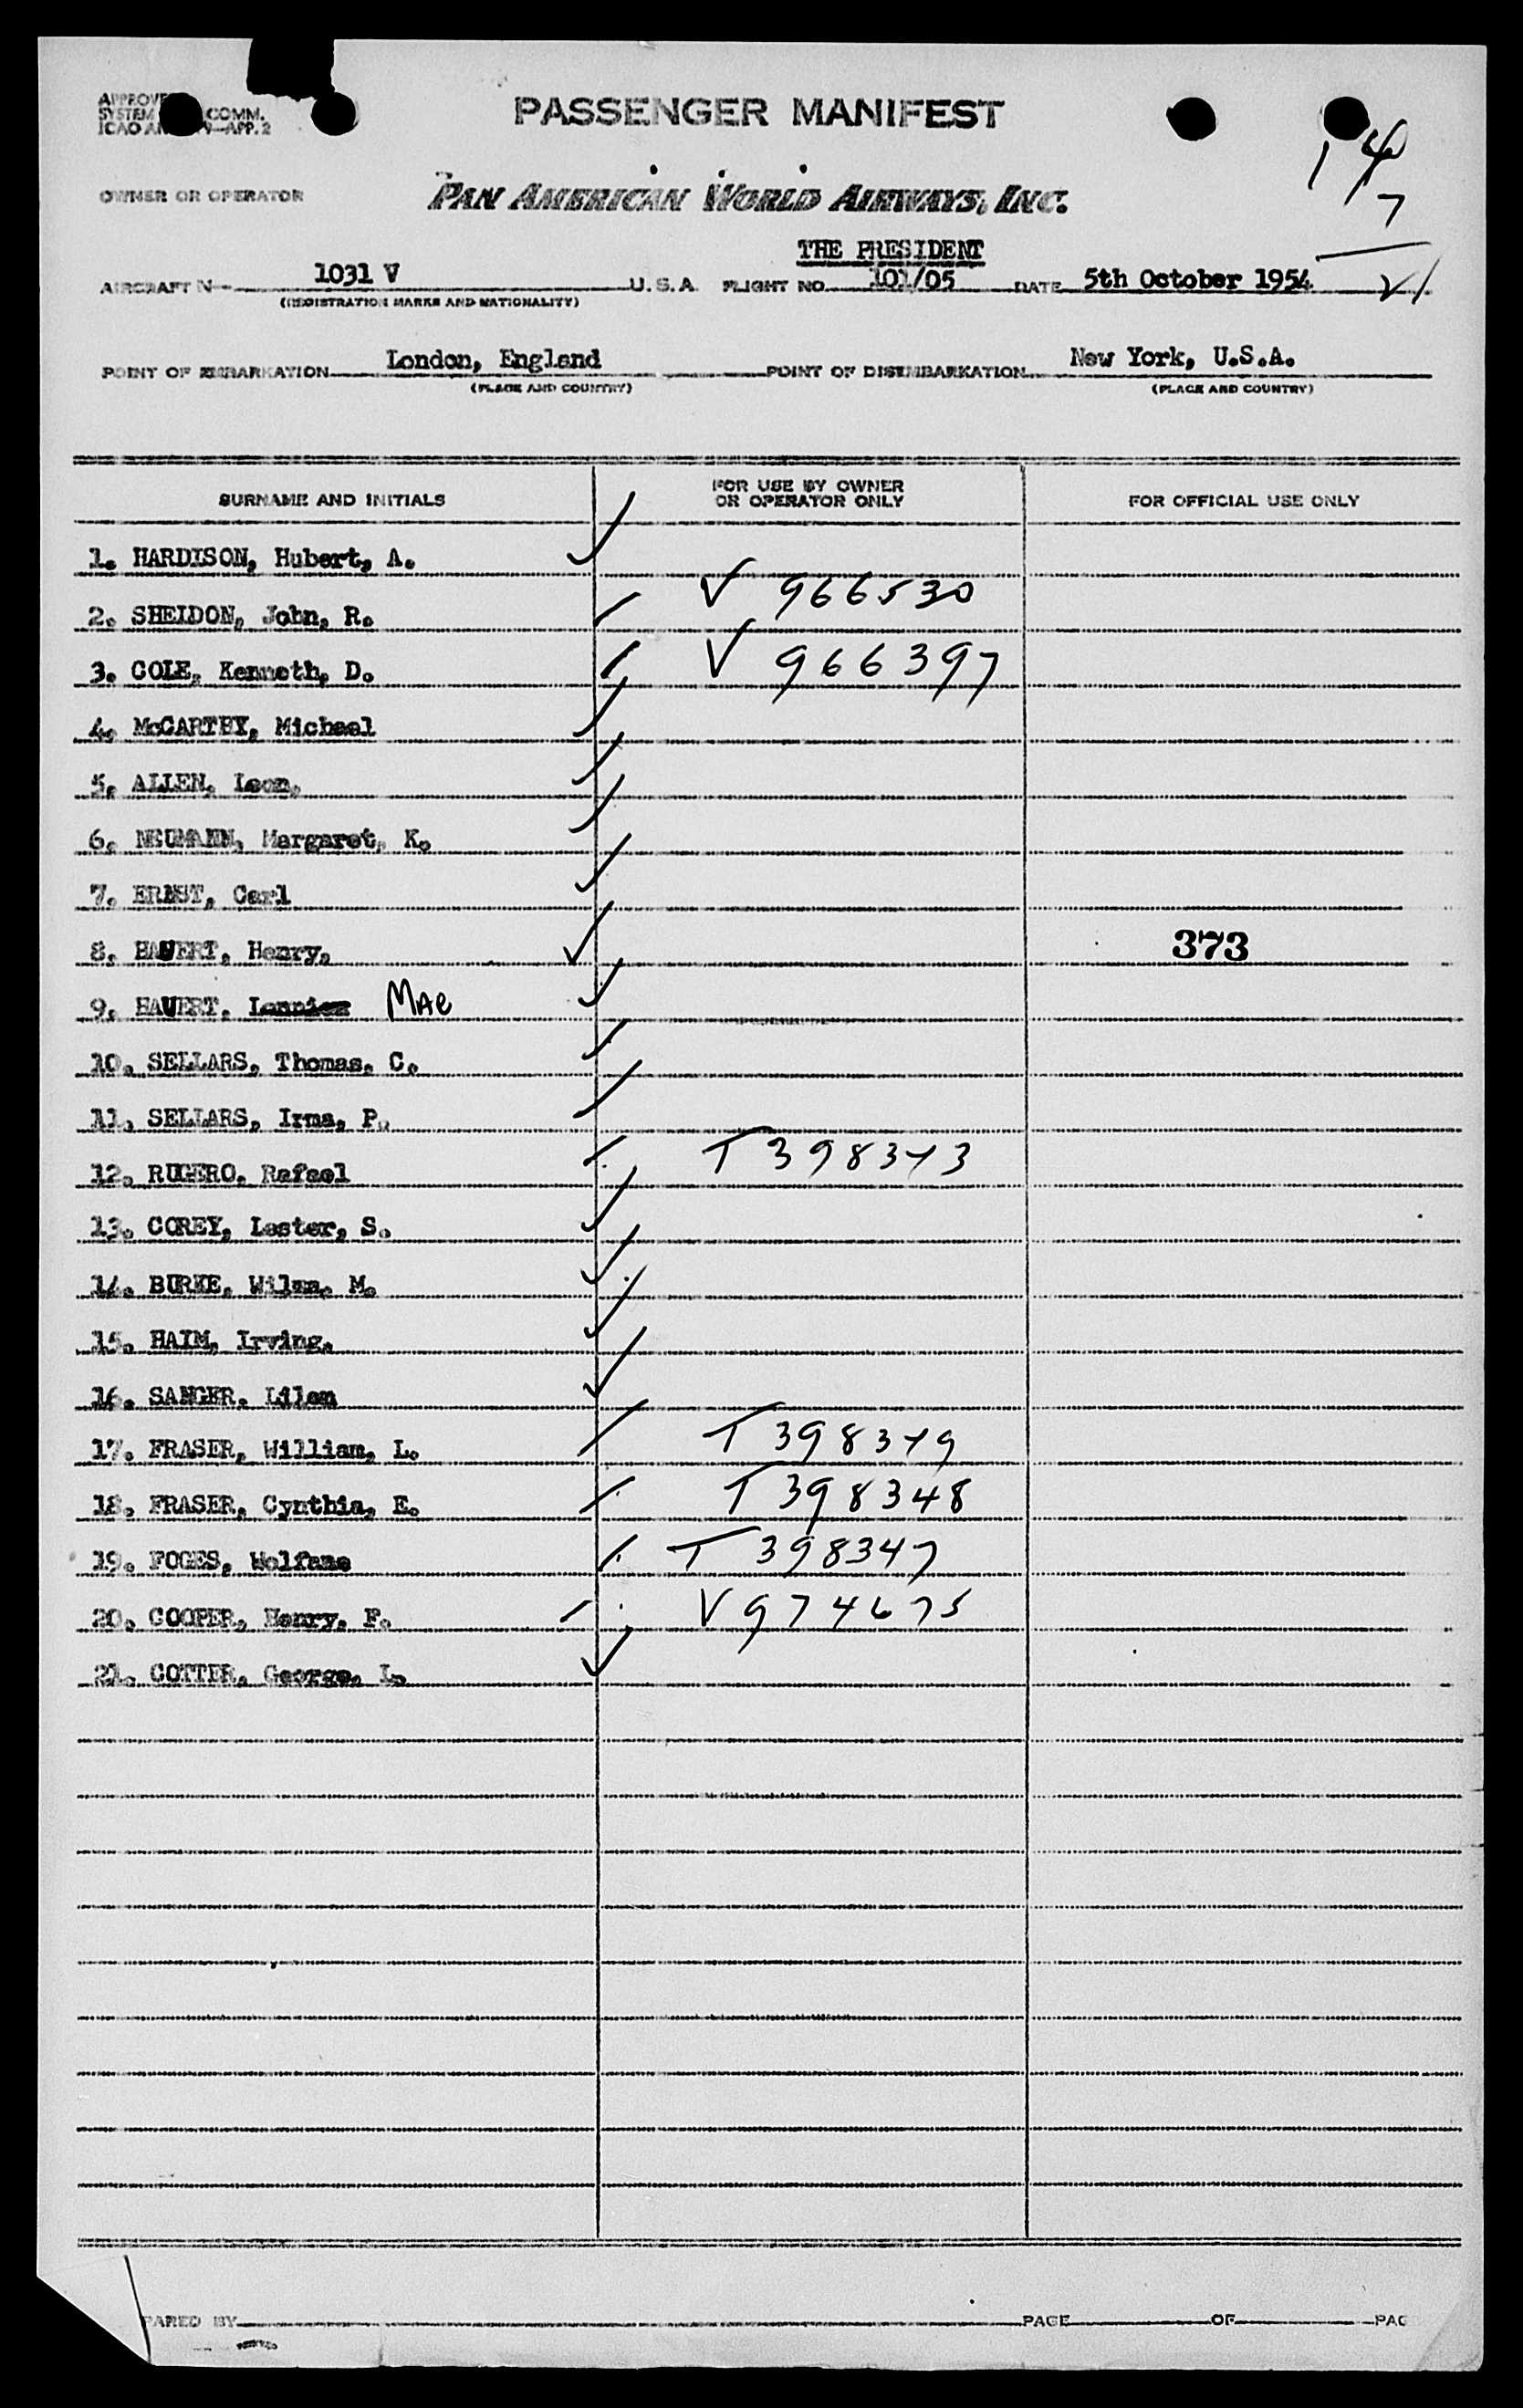 PASSENGER MANIFEST
COMM.
APP. 2
14
7
21
OWNER OR OPERATOR
PAN AMERICAN WORLD AIRWAYS, INC.
THE PRESIDENT
AIRCRAFT N 1031 V U.S.A. FLIGHT NO. 101/05 DATE 5th October 1954
(REGISTRATION MARKS AND NATIONALITY)
POINT OF EMBARKATION London, England POINT OF DISEMBARKATION New York, U.S.A.
(PLACE AND COUNTRY) (PLACE AND COUNTRY)
SURNAME AND INITIALS FOR USE BY OWNER OR OPERATOR ONLY FOR OFFICIAL USE ONLY
1. HARDISON, Hubert, A.
2. SHELDON, John, R. V 966530
3. COLE, Kenneth, D. V 966397
4. McCARTHY, Michael
5. ALLEN, Leon,
6. NEUMANN, Margaret, K.
7. ERNST, Carl
8. HAUERT, Henry, 373
9. HAUERT, MAe
10. SELLARS, Thomas, C.
11. SELLARS, Irma, P.
12. RUGERO, Rafael T 398343
13. COREY, Lester, S.
14. BURKE, Wilma, M.
15. HAIM, Irving,
16. SANGER, Lilen
17. FRASER, William, L. T 398349
18. FRASER, Cynthia, E. T 398348
19. FOGES, Wolfane T 398347
20. COOPER, Henry, F. V 974675
21. COTTER, George, L.
PARED BY PAGE OF PAG